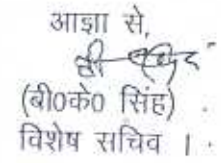 आज्ञा से,
(बी0के0 सिंह)
विशेष सचिव ।